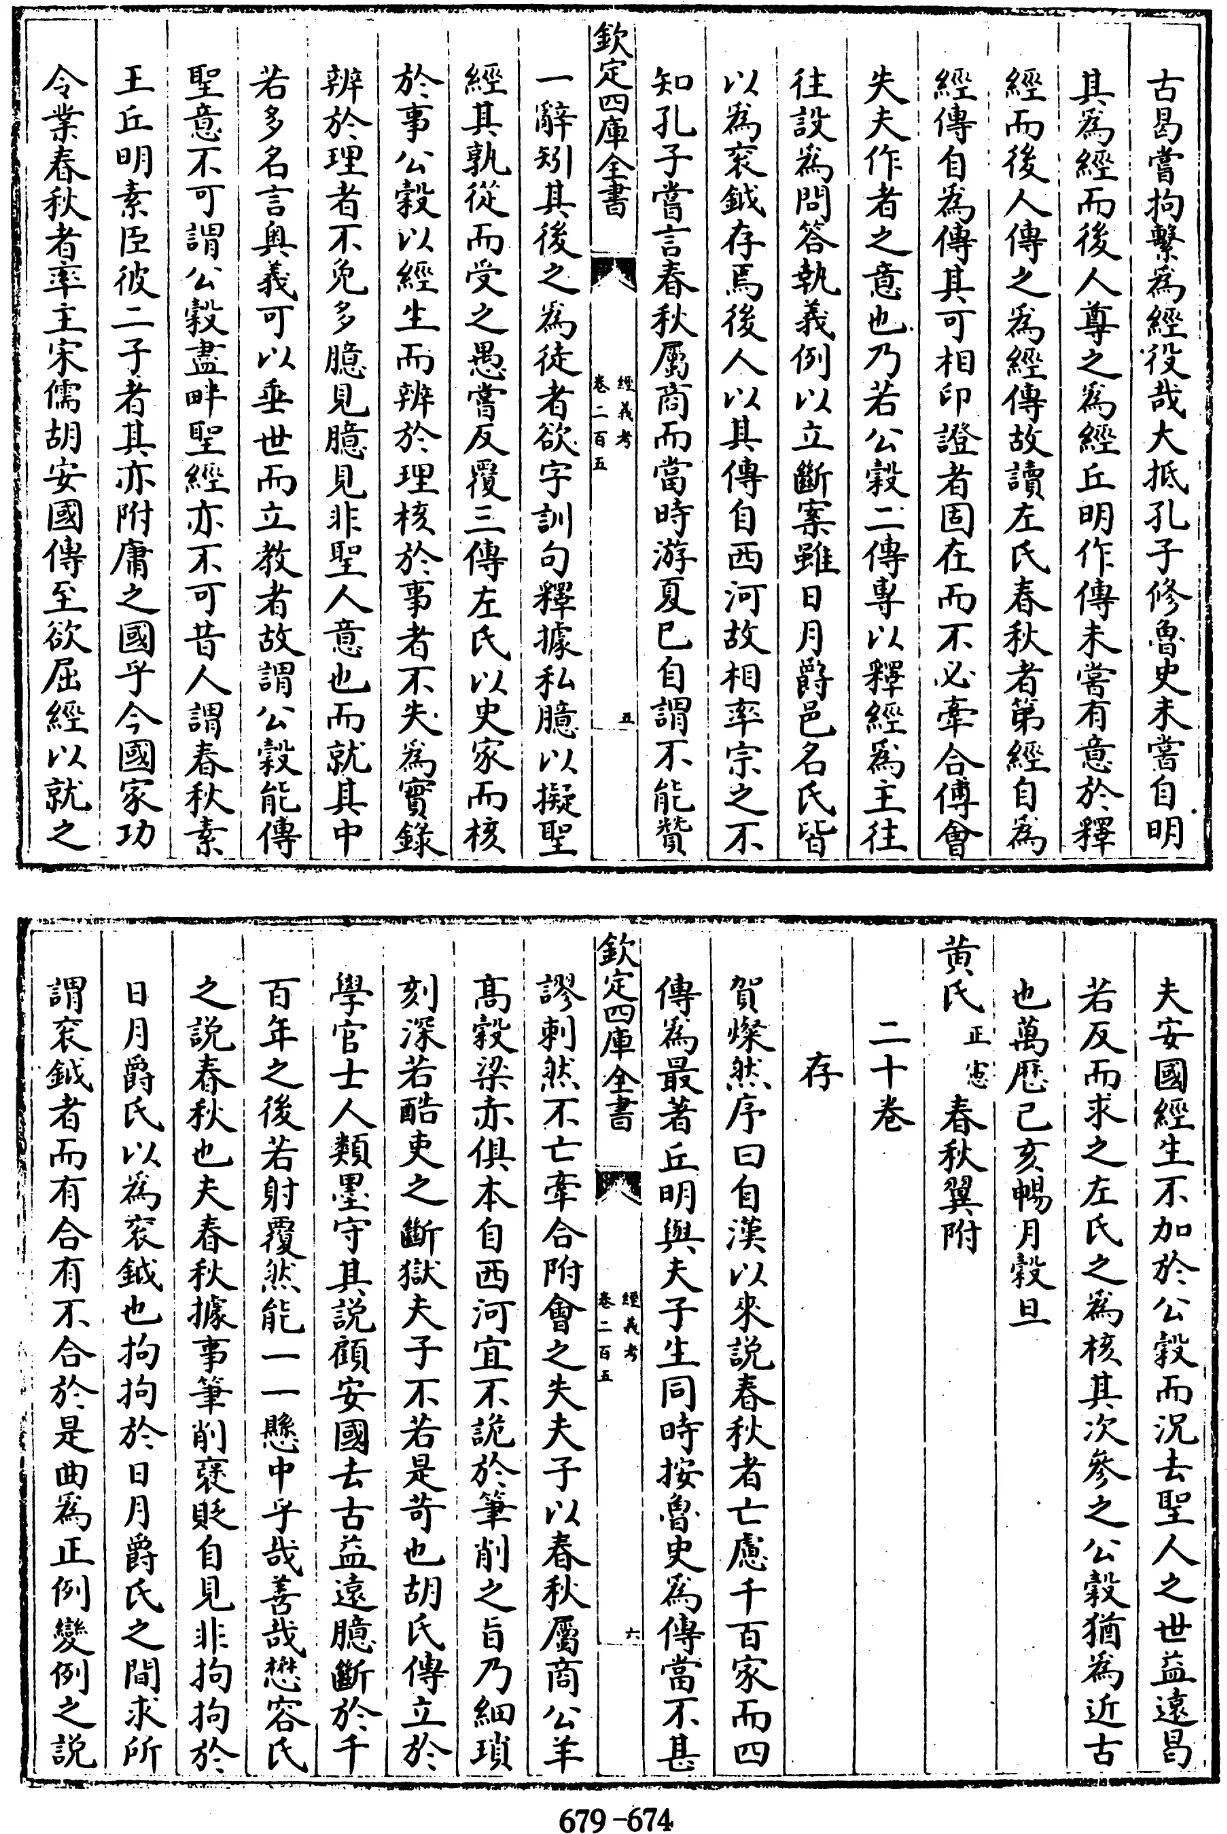 古曷嘗拘繫為經役哉大抵孔子修魯史未嘗自明
其為經而後人尊之為經丘明作傳未嘗有意於釋
經而後人傳之為經傳故讀左氏春秋者第經自為
經傳自為傳其可相印證者固在而不必牽合傅會
失夫作者之意也乃若公榖二傳專以釋經為主往
往設為問答執義例以立斷案雖日月爵邑名氏皆
以為衮鉞存焉後人以其傳自西河故相率宗之不
知孔子嘗言春秋屬商而當時游夏已自謂不能贊
欽定四庫全書
經義考
卷二百五
五
一辭矧其後之為徒者欲字訓句釋據私臆以擬聖
經其孰從而受之愚嘗反覆三傳左氏以史家而核
於事公榖以經生而辨於理核於事者不失為實錄
辨於理者不免多臆見臆見非聖人意也而就其中
若多名言奥義可以垂世而立教者故謂公榖能傳
聖意不可謂公榖盡畔聖經亦不可昔人謂春秋素
王丘明素臣彼二子者其亦附庸之國乎今國家功
令業春秋者率主宋儒胡安國傳至欲屈經以就之
夫安國經生不加於公榖而況去聖人之世益遠曷
若反而求之左氏之為核其次參之公榖猶為近古
也萬厯己亥暢月穀旦
黄氏正憲春秋翼附
二十卷
存
賀燦然序曰自漢以來説春秋者亡慮千百家而四
傳為最著丘明與夫子生同時按魯史為傳當不甚
欽定四庫全書
經義考
卷二百五
六
謬刺然不亡牽合附會之失夫子以春秋屬商公羊
髙榖梁赤俱本自西河宜不詭於筆削之旨乃細瑣
刻深若酷吏之斷獄夫子不若是苛也胡氏傳立於
學官士人類墨守其説顧安國去古益遠臆斷於千
百年之後若射覆然能一一懸中乎哉善哉懋容氏
之説春秋也夫春秋據事筆削褒貶自見非拘拘於
日月爵氏以為衮鉞也拘拘於日月爵氏之間求所
謂衮鉞者而有合有不合於是曲為正例變例之説
679-674